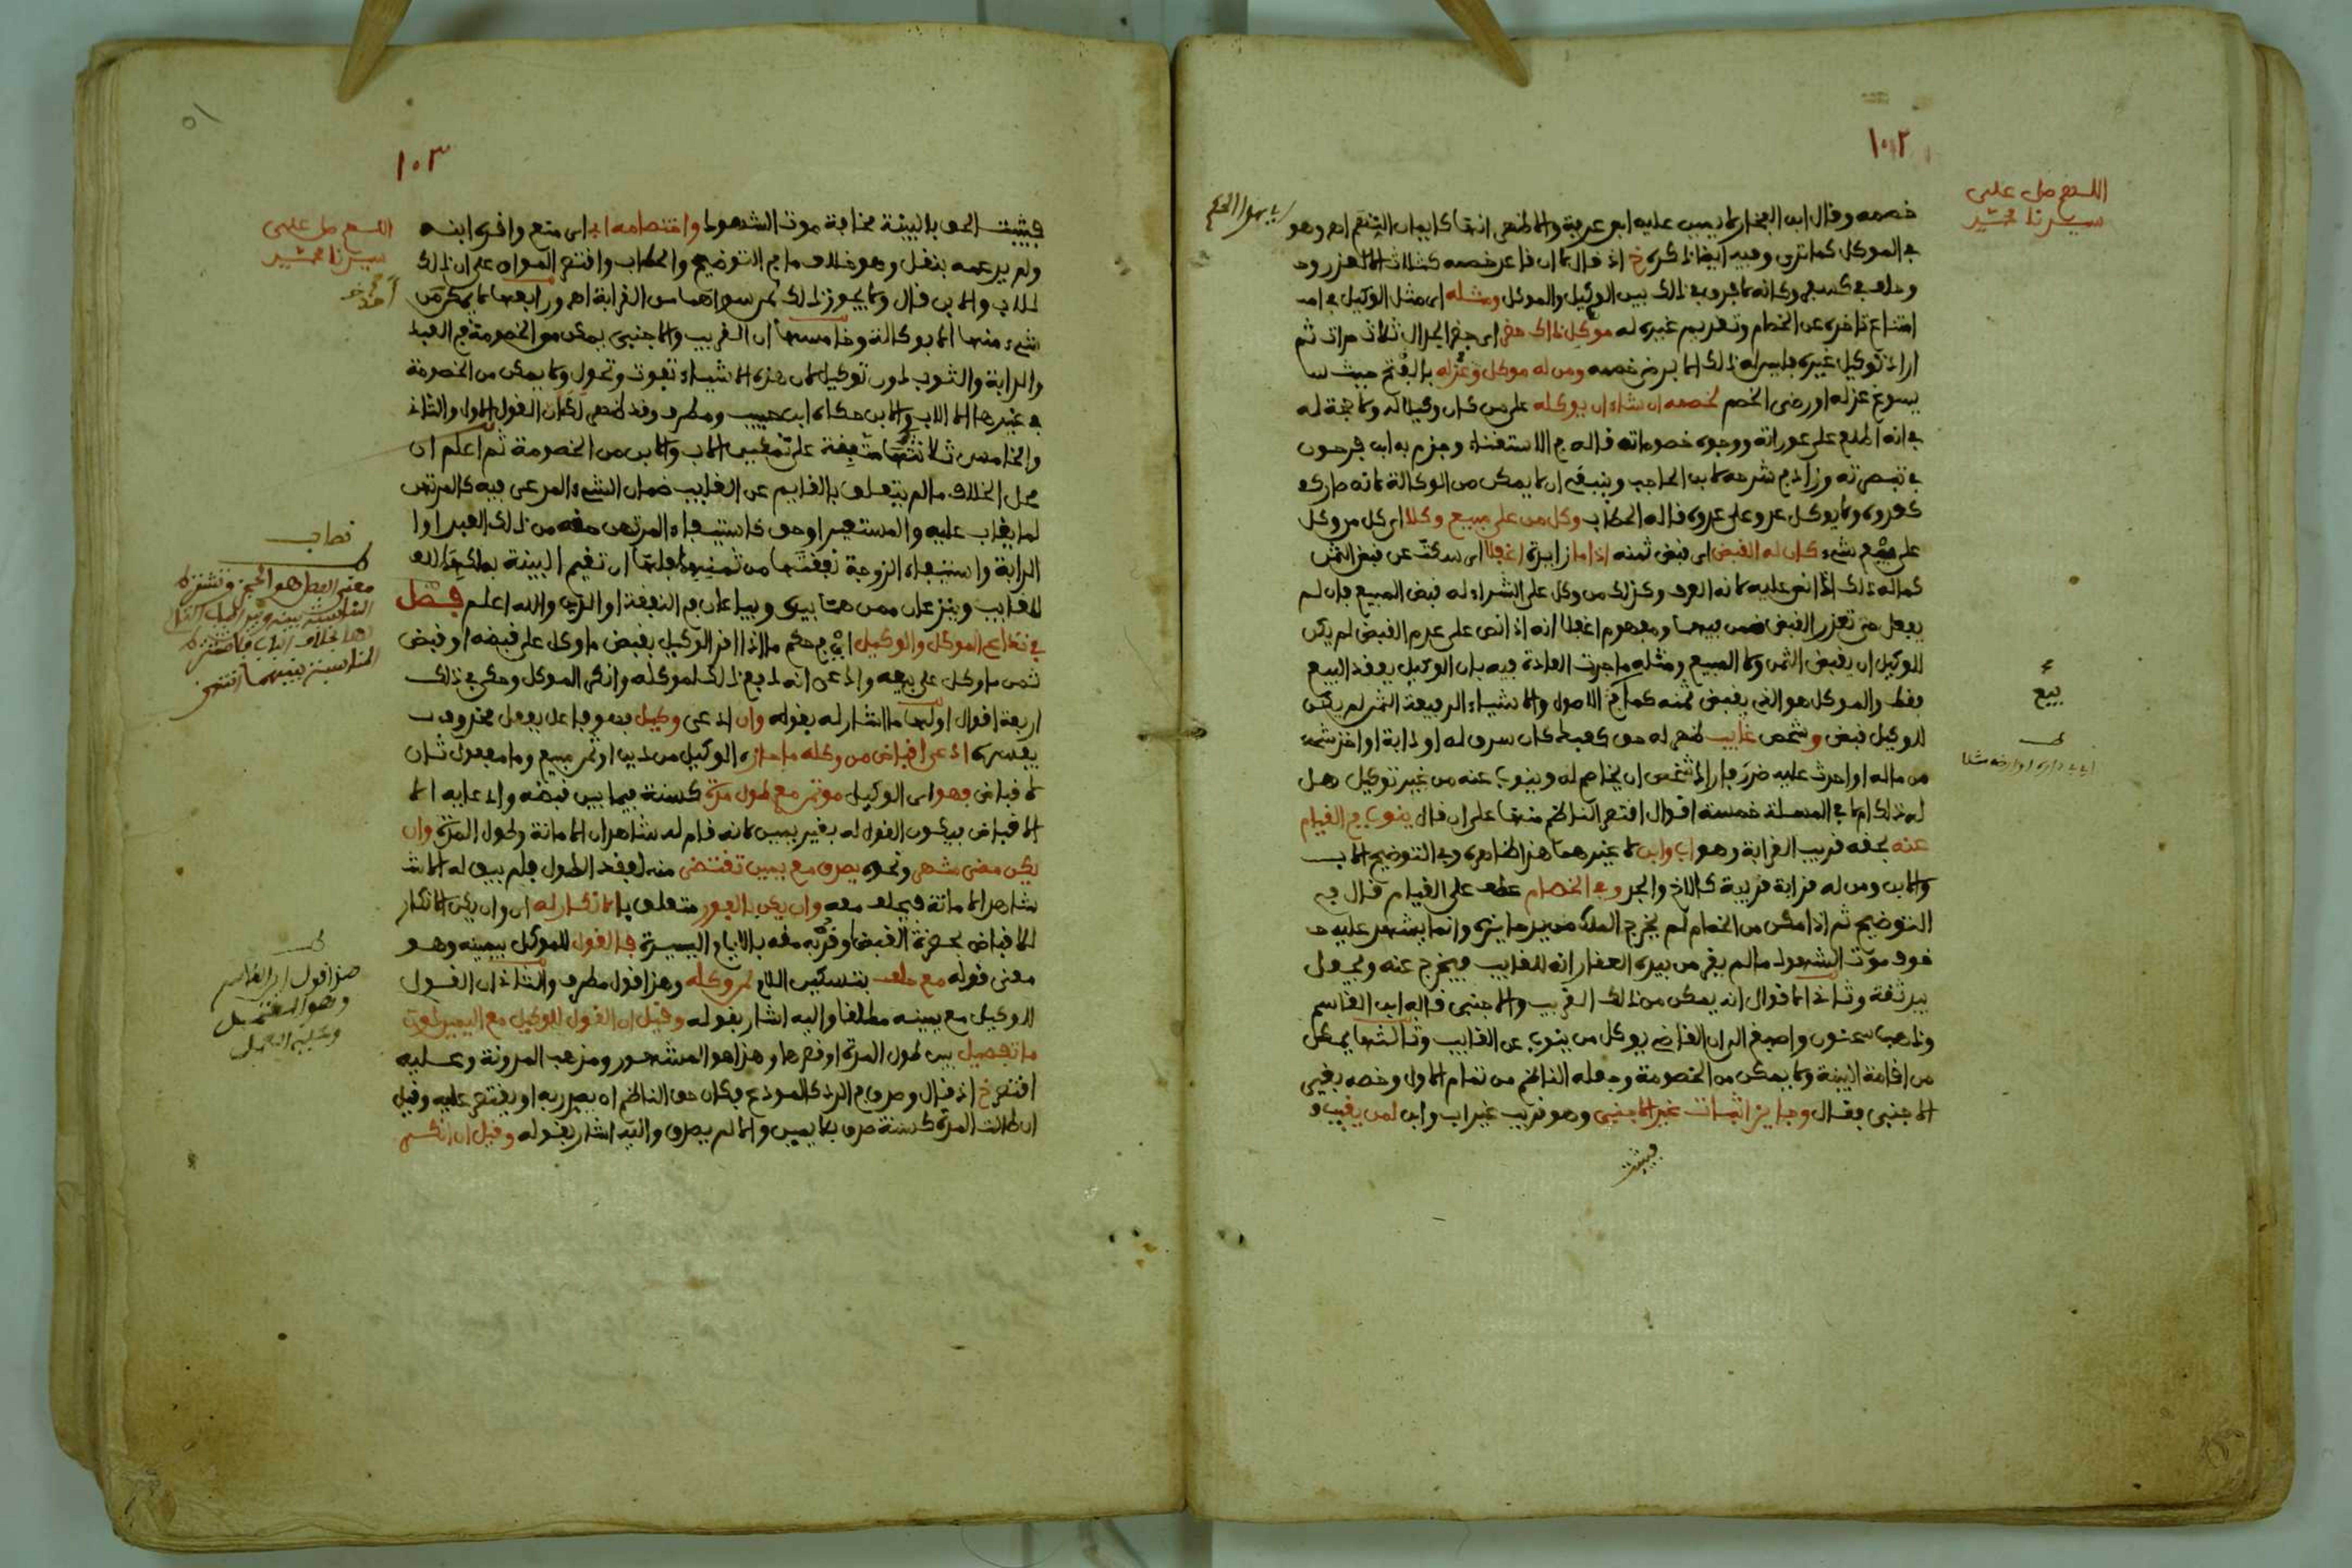 ١٠٢
اللهم صل على
سيدنا محمد
خصمه وقال ابن الفخار لا يمين عليه ابن عرفة والاظهر انها كايمان التهم اهـ وهو
في الموكل كما ترى وفيه ايضا ذكره خ اذ قال لا ان قاعد خصمه كثلاث الا لعذر وحـ
وحلف في كسفر وكانه لا فرق في ذلك بين الوكيل والموكل ومثله اي مثل الوكيل في امـ
امتناع تاخره عن الخصام وتقديم غيره له موكل ذاك حضر اي حضر الجدال ثلاث مرات ثم
اراد توكيل غيره فليس له ذلك الا برضى خصمه ومن له موكل وعزله بالفتح حيث
يسوغ عزله او رضى الخصم لخصمه ان شاء ان يوكله على من كان وكيلا له ولا حجة له
في انه اطلع على عوراته ووجوه خصوماته قاله في الاستغناء وجزم به ابن فرحون
في تبصرته وزاد في شرحه لابن الحاجب وينبغي ان لا يمكن من الوكالة لانه صار كـ
كعدوه ولا يوكل عدو على عدوه قاله الحطاب وكل من على مبيع وكلا اي كل من وكل
على بيع شيء كان له القبض اي قبض ثمنه اذا ما زايدة اغفلا اي سكت عن قبض الثمن
كما له ذلك اذا نص عليه لانه العرف وكذلك من وكل على الشراء له قبض المبيع فان لم
يفعل حتى تعذر القبض ضمن فيهما ومفهوم اغفلا انه اذا نص على عدم القبض لم يكن
للوكيل ان يقبض الثمن ولا المبيع ومثله ما جرت العادة فيه بان الوكيل يعقد البيع
بيع
فقط والموكل هو الذي يقبض ثمنه كما في الاصول والاشياء الرفيعة الثمن لم يكن
للوكيل قبض وشخص غايب ظهر له حق كعبد كان سرق له او دابة او اخذ شيء
من ماله او احدث عليه ضرر فاراد شخص ان يخاصم له وينوب عنه من غير توكيل هل
له ذلك ام لا في المسئلة خمسة اقوال اقتصر الناظم منها على ان قال ينوب في القيام
عنه بحقه قريب القرابة وهو اب وابن لا غيرهما هذا ظاهره وفي التوضيح الاب
والابن ومن له قرابة قريبة كالاخ والجد وفي الخصام عطف على القيام قال في
التوضيح ثم اذا مكن من الخصام لم يخرج الملك من يد حايزه وانما يشهد عليه حـ
خوف موت الشهود ما لم يقر من بيده العقار انه للغايب فيخرج عنه ويجعل
بيد ثقة وثاني الاقوال انه يمكن من ذلك القريب والاجنبي قاله ابن القاسم
وذهب سحنون واصبغ الى ان القاضي يوكل من ينوب عن الغايب وثالثها يمكن
من اقامة البينة ولا يمكن من الخصومة وجعله الناظم من تمام الاول وخصه بغير
الاجنبي فقال وجايز اثبات غير الاجنبي وهو قريب غير اب وابن لمن يغيب و
فيثبت
١٠٣
اللهم صل على
سيدنا محمد
فيثبت الحق بالبينة مخافة موت الشهود واقتضاءه ابي اي منع واقره ابنه
ولم يدعمه بنقل وهو خلاف ما في التوضيح والحطاب واقتصر المواق على ان ذلك
للاب والابن قال ولا يجوز ذلك لمن سواهما من القرابة اهـ ورابعها لا يمكن من
شيء منها الا بوكالة وخامسها ان القريب والاجنبي يمكن من الخصومة في العبد
والدابة والثوب دون توكيل لان هذه الاشياء تفوت وتحول ولا يمكن من الخصومة
في غيرها الا الاب والابن حكاه ابن حبيب ومطرف وقد ظهر لك ان القول الاول والثاني
والخامس ثلاثتها متفقة على تمكين الاب والابن من الخصومة ثم اعلم ان
محل الخلاف ما لم يتعلق بالقايم عن الغايب ضمان الشيء المدعى فيه كالمرتهن
لما يغاب عليه والمستعير او حق كاستيفاء المرتهن حقه من ذلك العبد او ا
الدابة واستيفاء الزوجة نفقتها من ثمنها فلها ان تقيم البينة بملك ذلك
للغايب وينزعان ممن هما بيده ويباعان في النفقة او الدين والله اعلم فصل
في تداعي الموكل والوكيل اي في حكم ما اذا اقر الوكيل بقبض ما وكل على قبضه او قبض
ثمن ما وكل على بيعه وادعى انه دفع ذلك لموكله وانكر الموكل وحكى في ذلك
اربعة اقوال اولها ما اشار له بقوله وان ادعى وكيل فهو فاعل بفعل محذوف
يفسره ادعى اقباض من وكله ما حازه الوكيل من دين او ثمن مبيع وما مفعول ثان
لاقباض فهو اي الوكيل موتمن مع طول مدة كسنة فيما بين قبضه وادعايه الا
الاقباض فيكون القول له بغير يمين لانه قام له شاهدان الامانة وطول المدة وان
يكن مضى شهر ونحوه يصدق مع يمين تقتضى منه لفقد الطول فلم يبق له الا شـ
شاهد الامانة فيحلف معه وان يكن بالفور متعلق بالانكار له اي وان يكن الانكار
للاقباض بحضرة القبض او قربه منه بالايام اليسيرة فالقول للموكل بيمينه وهو
معنى قوله مع حلف بتسكين اللام لمن وكله وهذا قول مطرف والثاني ان القول
للوكيل مع يمينه مطلقا واليه اشار بقوله وقيل ان القول للوكيل مع اليمين دون
ما تفصيل بين طول المدة او قصرها وهذا هو المشهور ومذهب المدونة وعليه
اقتصر خ اذ قال وصدق في الرد كالمودع فكان حق الناظم ان يصدر به او يقتصر عليه وقيل
ان طالت المدة كسنة صدق بلا يمين والا لم يصدق واليه اشار بقوله وقيل ان انكـ
هذا قول ابن القاسم